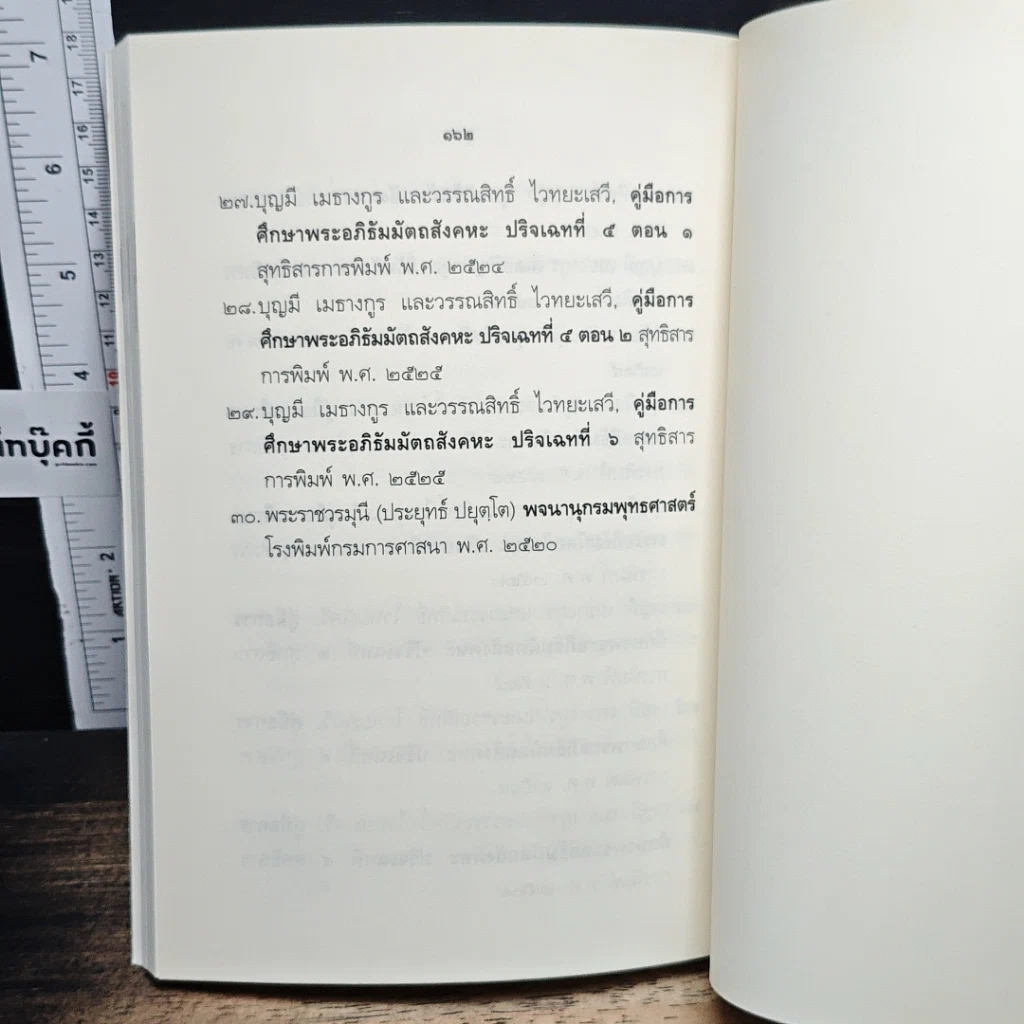 ๑๖๒
๒๗.บุญมี เมธางกูร และวรรณสิทธิ์ ไวทยะเสวี, คู่มือการ
ศึกษาพระอภิธัมมัตถสังคหะ ปริจเฉทที่ ๕ ตอน ๑
สุทธิสารการพิมพ์ พ.ศ. ๒๕๒๔
๒๘.บุญมี เมธางกูร และวรรณสิทธิ์ ไวทยะเสวี, คู่มือการ
ศึกษาพระอภิธัมมัตถสังคหะ ปริจเฉทที่ ๕ ตอน ๒ สุทธิสาร
การพิมพ์ พ.ศ. ๒๕๒๕
๒๙.บุญมี เมธางกูร และวรรณสิทธิ์ ไวทยะเสวี, คู่มือการ
ศึกษาพระอภิธัมมัตถสังคหะ ปริจเฉทที่ ๖ สุทธิสาร
การพิมพ์ พ.ศ. ๒๕๒๕
๓๐. พระราชวรมุนี (ประยุทธ์ ปยุตฺโต) พจนานุกรมพุทธศาสตร์
โรงพิมพ์กรมการศาสนา พ.ศ. ๒๕๒๐
7
6
5
4
2
1
18
17
16
15
14
13
12
11
10